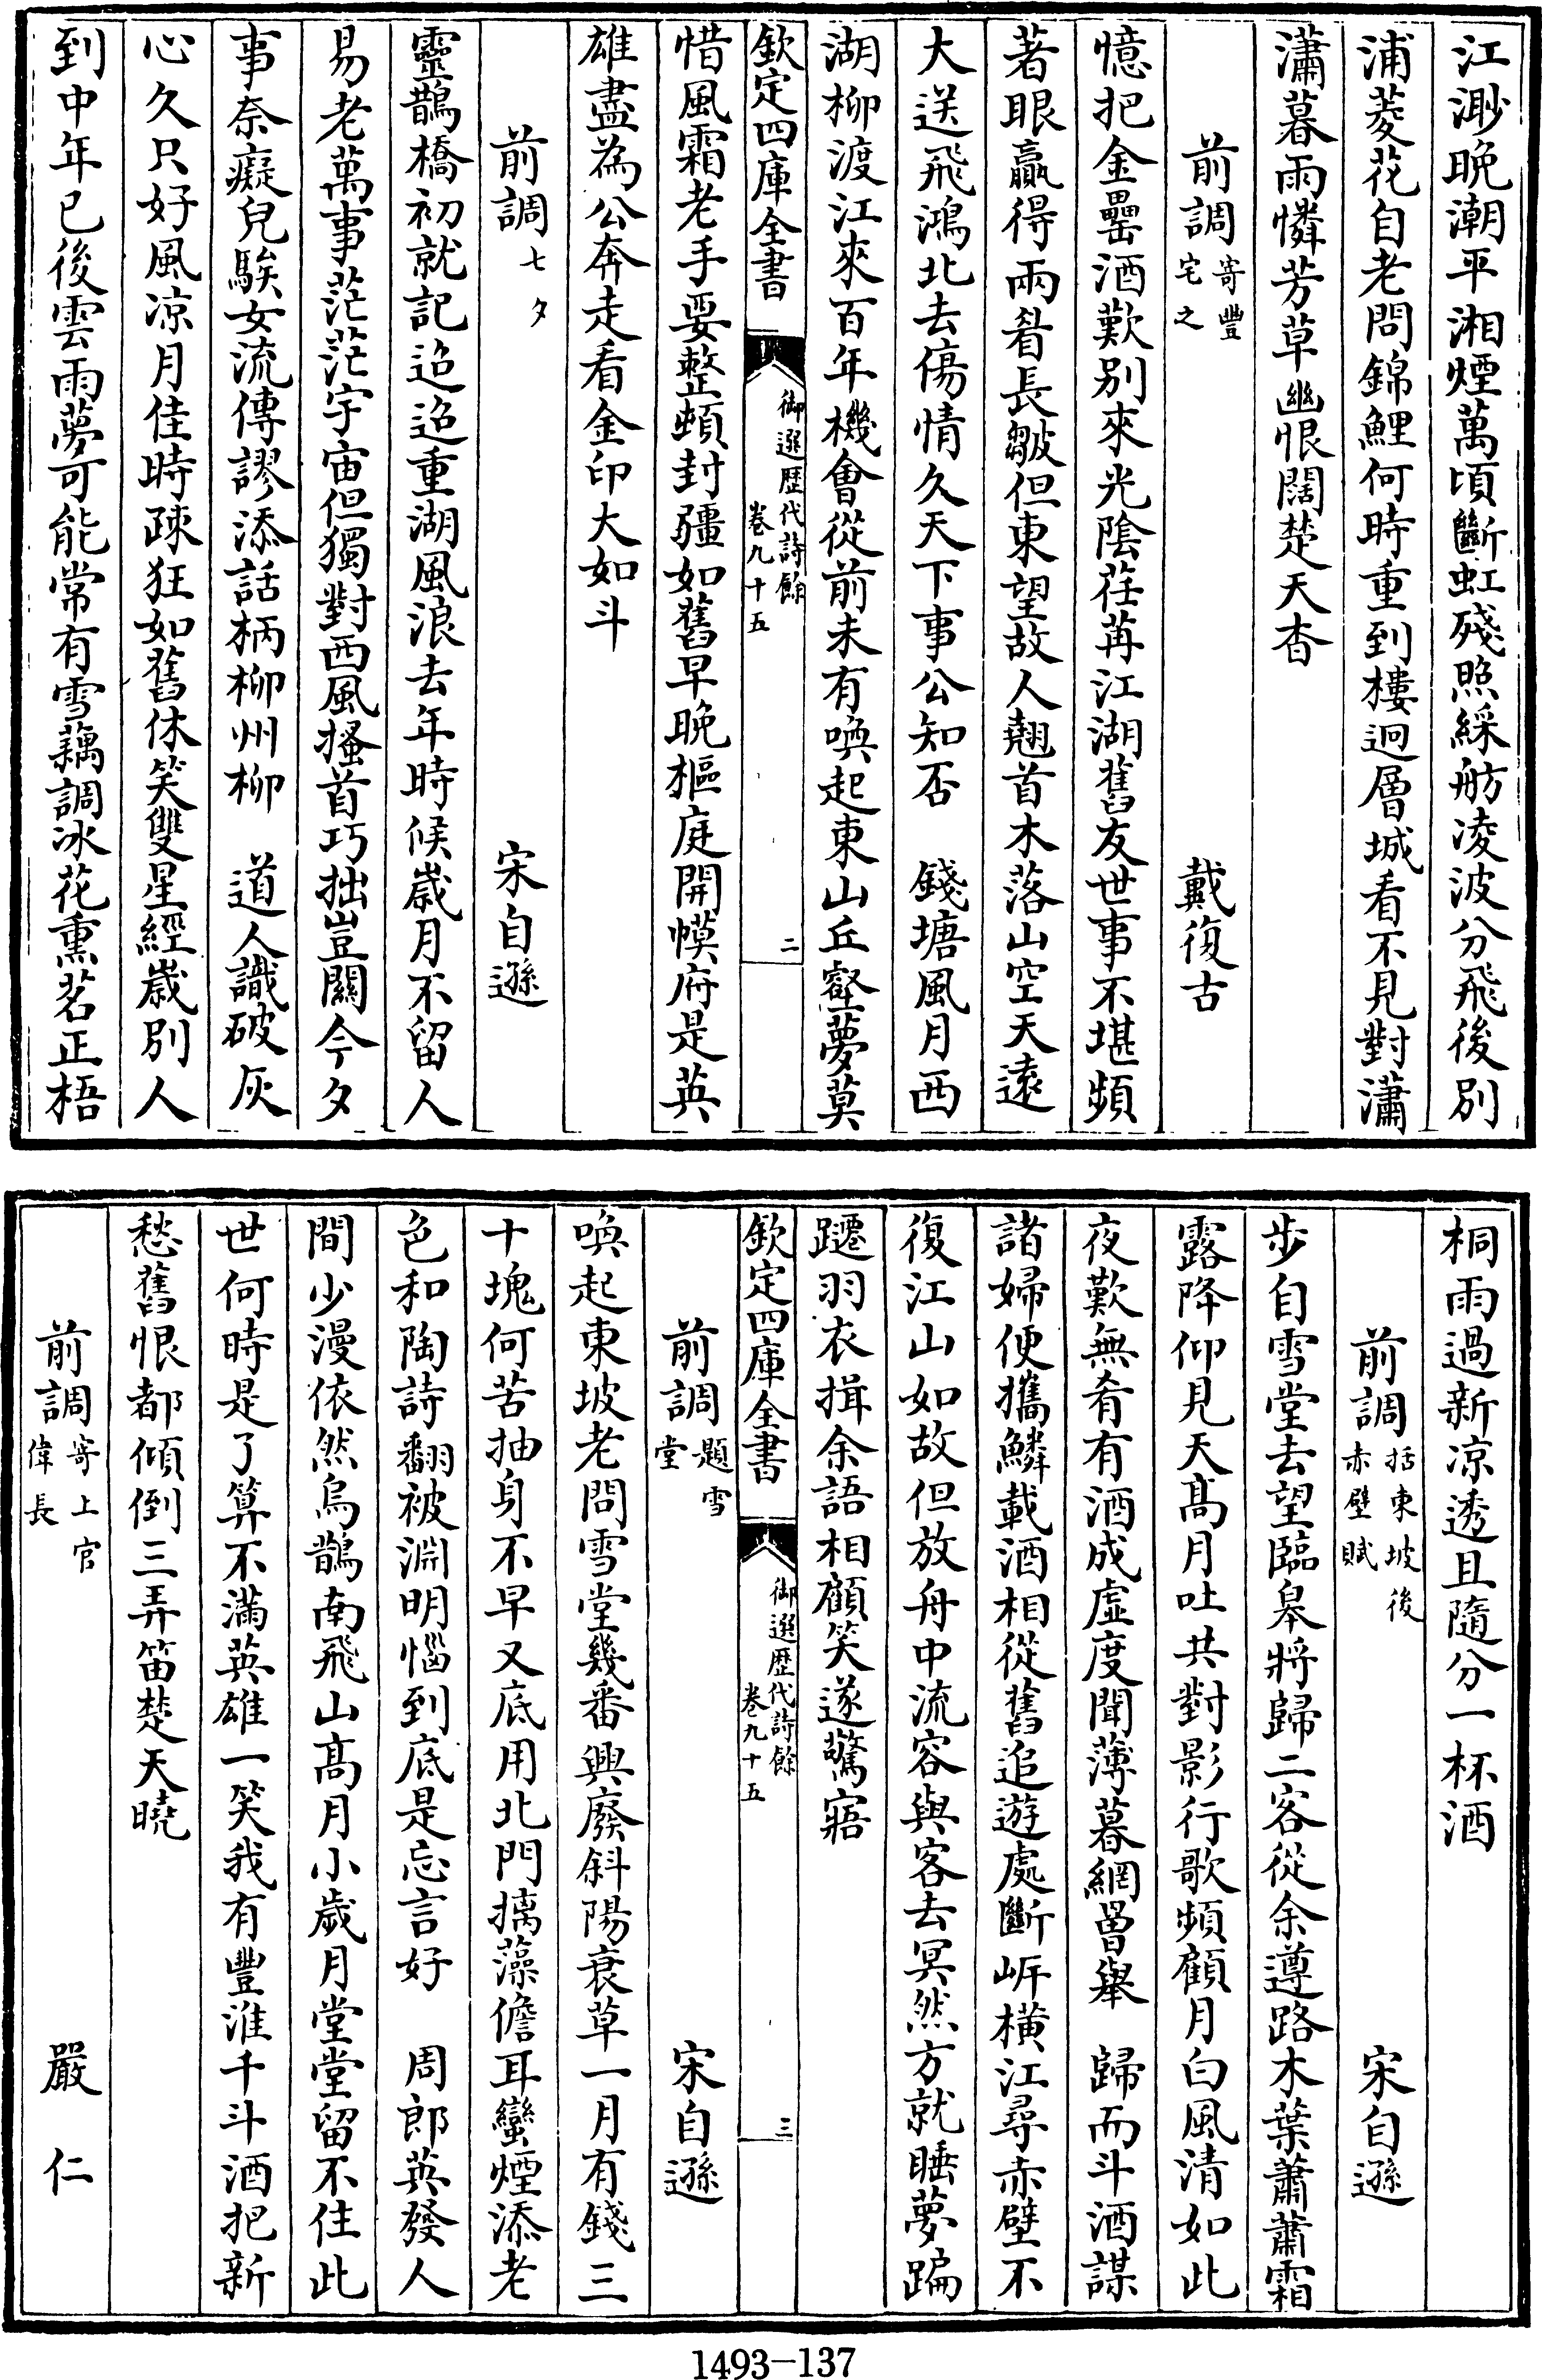 江渺晚潮平湘煙萬頃斷虹殘照綵舫凌波分飛後別
浦菱花自老問錦鯉何時重到樓迥層城看不見對瀟
瀟暮雨憐芳草幽恨闊楚天杳
前調寄豐宅之　戴復古
憶把金罍酒歎別來光陰荏苒江湖舊友世事不堪頻
著眼贏得兩眉長皺但東望故人翹首木落山空天遠
大送飛鴻北去傷情久天下事公知否　錢塘風月西
湖柳渡江來百年機會從前未有喚起東山丘壑夢莫
欽定四庫全書　御選歷代詩餘卷九十五　二
惜風霜老手要整頓封疆如舊早晚樞庭開幙府是英
雄盡為公奔走看金印大如斗
前調七夕　宋自遜
靈鵲橋初就記迢迢重湖風浪去年時候歲月不留人
易老萬事茫茫宇宙但獨對西風搔首巧拙豈關今夕
事奈癡兒騃女流傳謬添話柄柳州柳　道人識破灰
心久只好風凉月佳時疎狂如舊休笑雙星經歲別人
到中年已後雲雨夢可能常有雪藕調冰花熏茗正梧
桐雨過新凉透且隨分一杯酒
前調括東坡後赤壁賦　宋自遜
步自雪堂去望臨皋將歸二客從余遵路木葉蕭蕭霜
露降仰見天髙月吐共對影行歌頻顧月白風清如此
夜歎無肴有酒成虛度聞薄暮網罾舉　歸而斗酒謀
諸婦便攜鱗載酒相從舊追遊處斷岍橫江尋赤壁不
復江山如故但放舟中流容與客去冥然方就睡夢蹁
躚羽衣揖余語相顧笑遂驚寤
欽定四庫全書　御選歷代詩餘卷九十五　三
前調題雪堂　宋自遜
喚起東坡老問雪堂幾番興廢斜陽衰草一月有錢三
十塊何苦抽身不早又底用北門摛藻儋耳蠻煙添老
色和陶詩翻被淵明惱到底是忘言好　周郎英發人
間少漫依然烏鵲南飛山髙月小歲月堂堂留不住此
世何時是了算不滿英雄一笑我有豐淮千斗酒把新
愁舊恨都傾倒三弄笛楚天曉
前調寄上官偉長　嚴仁
1493-137